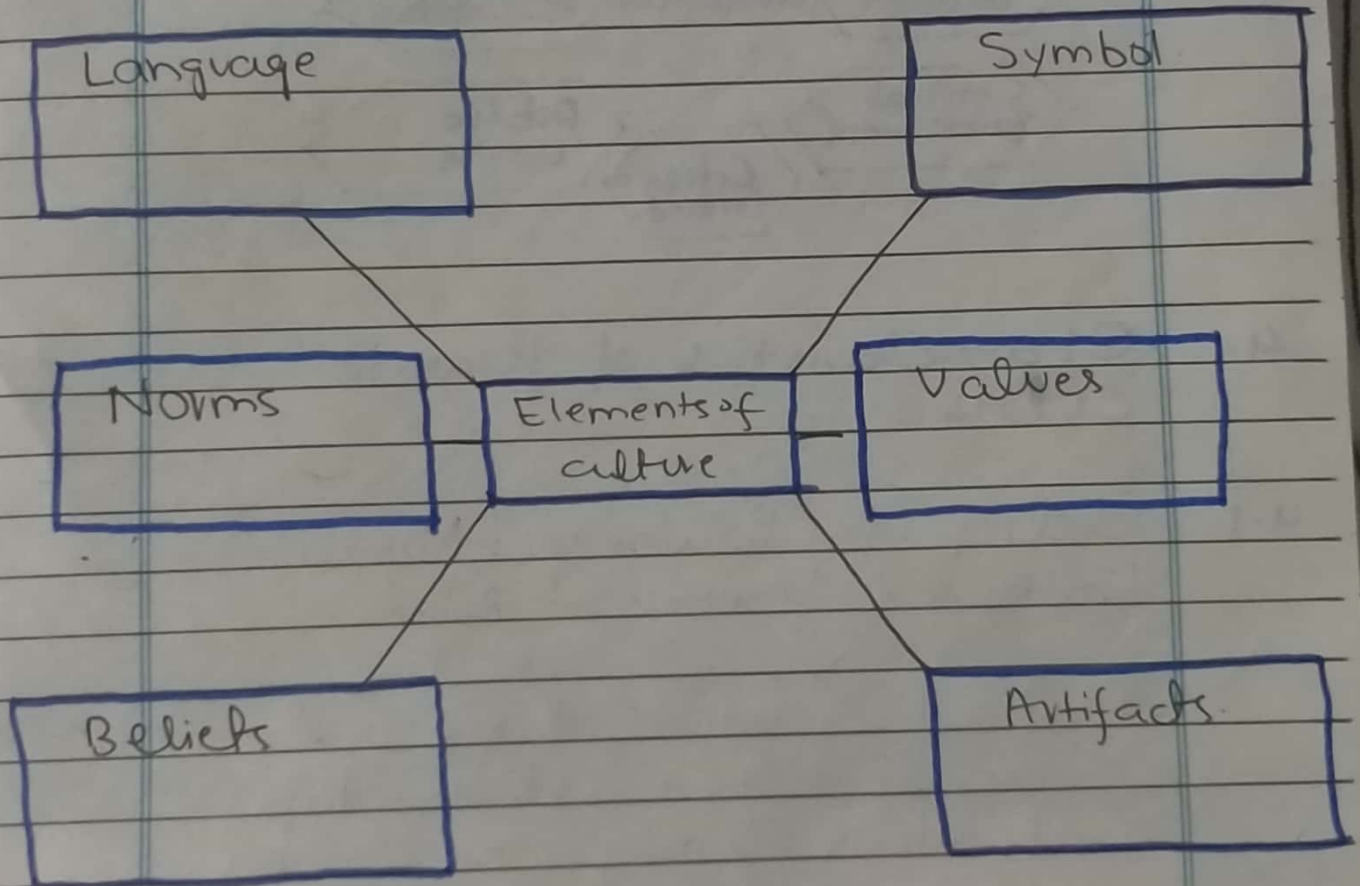 Language
Symbol
Norms
Elements of
culture
Values
Beliefs
Artifacts.